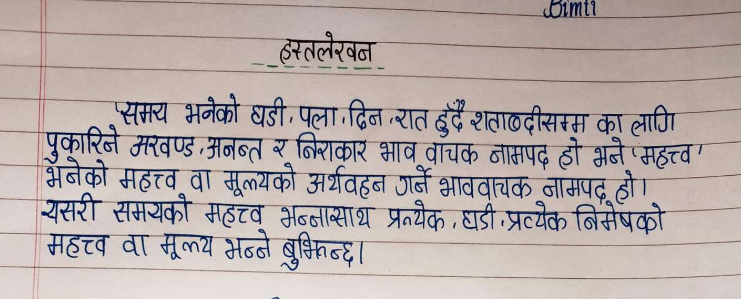 Bimti
हस्तलेखन
'समय भनेको घडी, पला, दिन, रात हुँदै शताब्दीसम्म का लागि
पुकारिने अखण्ड, अनन्त र निराकार भाव वाचक नामपद हो भने 'महत्त्व'
भनेको महत्त्व वा मूल्यको अर्थवहन गर्ने भाववाचक नामपद हो।
यसरी समयको महत्त्व भन्नासाथ प्रत्येक, घडी, प्रत्येक निमेषको
महत्त्व वा मूल्य भन्ने बुझिन्छ।